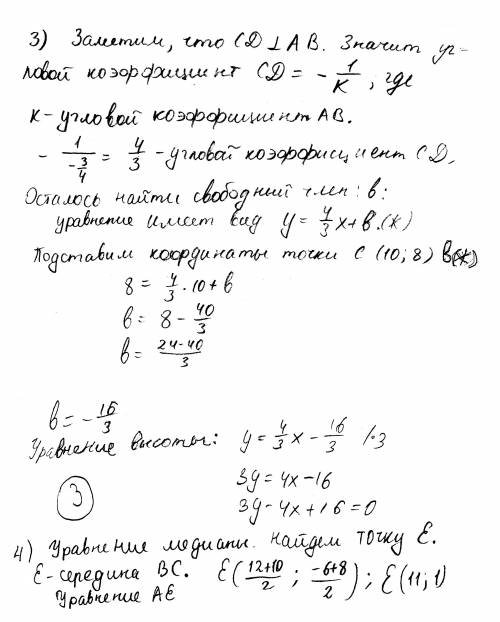 3) Заметим, что CD ⊥ AB. Значит уг-
ловой коэффициент CD = - 1/K, где
к - угловой коэффициент AB.
- 1/(-3/4) = 4/3 - угловой коэффициент CD.
Осталось найти свободный член: в:
уравнение имеет вид y = 4/3 x + в. (*)
Подставим координаты точки C (10; 8) в (*)
8 = 4/3 · 10 + в
в = 8 - 40/3
в = (24-40)/3
в = - 16/3
Уравнение высоты: y = 4/3 x - 16/3 /·3
3y = 4x - 16
3y - 4x + 16 = 0
3
4) Уравнение медианы. Найдем точку E.
E - середина BC. E((12+10)/2 ; (-6+8)/2); E(11; 1)
Уравнение AE